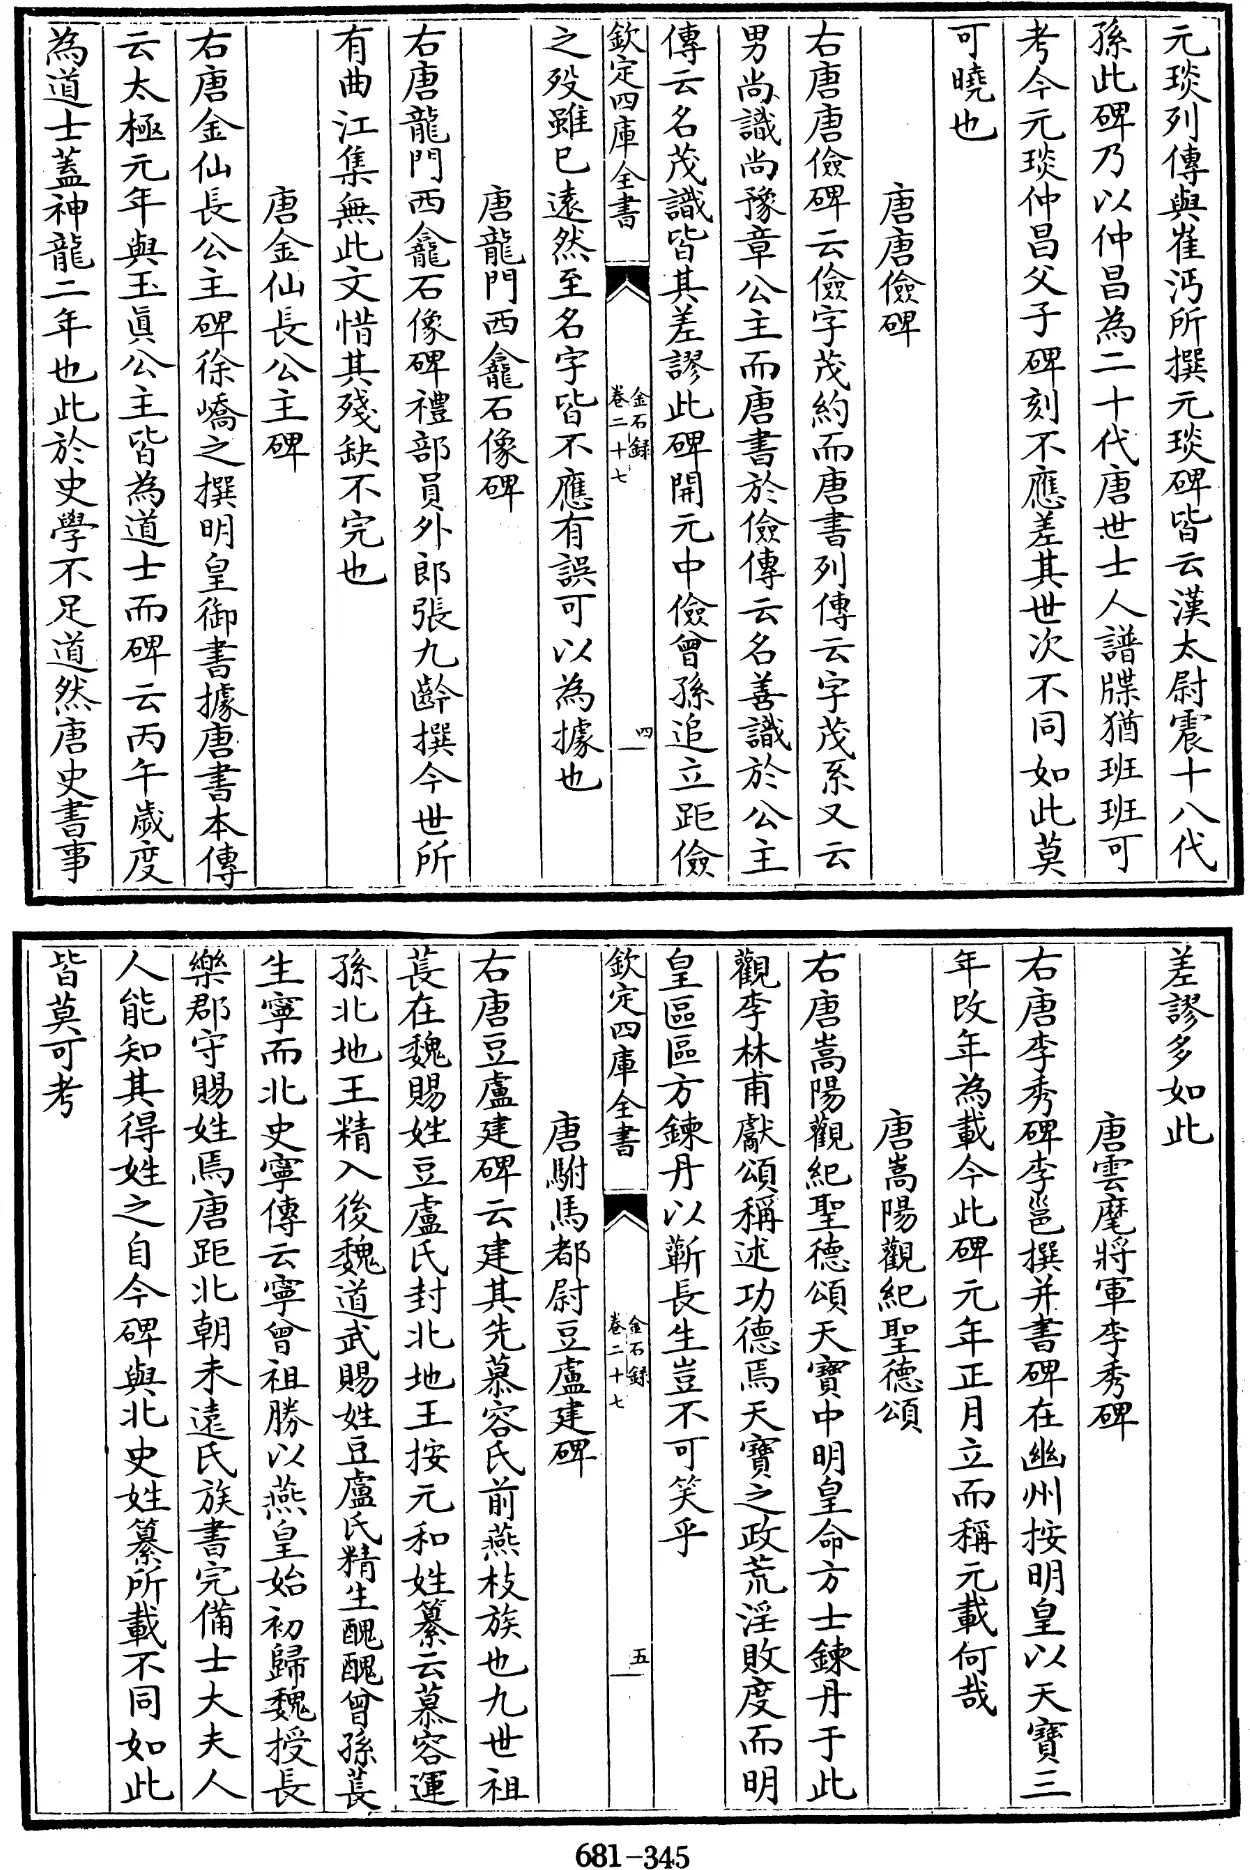 元琰列傳與崔沔所撰元琰碑皆云漢太尉震十八代
孫此碑乃以仲昌為二十代唐世士人譜牒猶班班可
考今元琰仲昌父子碑刻不應差其世次不同如此莫
可曉也
唐唐儉碑
右唐唐儉碑云儉字茂約而唐書列傳云字茂系又云
男尚識尚豫章公主而唐書於儉傳云名善識於公主
傳云名茂識皆其差謬此碑開元中儉曾孫追立距儉
欽定四庫全書
金石録
卷二十七
四
之殁雖已遠然至名字皆不應有誤可以為據也
唐龍門西龕石像碑
右唐龍門西龕石像碑禮部員外郎張九齡撰今世所
有曲江集無此文惜其殘缺不完也
唐金仙長公主碑
右唐金仙長公主碑徐嶠之撰明皇御書據唐書本傳
云太極元年與玉眞公主皆為道士而碑云丙午歲度
為道士蓋神龍二年也此於史學不足道然唐史書事
差謬多如此
唐雲麾將軍李秀碑
右唐李秀碑李邕撰并書碑在幽州按明皇以天寶三
年改年為載今此碑元年正月立而稱元載何哉
唐嵩陽觀紀聖德頌
右唐嵩陽觀紀聖德頌天寶中明皇命方士鍊丹于此
觀李林甫獻頌稱述功德焉天寶之政荒淫敗度而明
皇區區方鍊丹以蘄長生豈不可笑乎
欽定四庫全書
金石録
卷二十七
五
唐駙馬都尉豆盧建碑
右唐豆盧建碑云建其先慕容氏前燕枝族也九世祖
萇在魏賜姓豆盧氏封北地王按元和姓纂云慕容運
孫北地王精入後魏道武賜姓豆盧氏精生醜醜曾孫萇
生寧而北史寧傳云寧曾祖勝以燕皇始初歸魏授長
樂郡守賜姓焉唐距北朝未遠氏族書完備士大夫人
人能知其得姓之自今碑與北史姓纂所載不同如此
皆莫可考
681-345